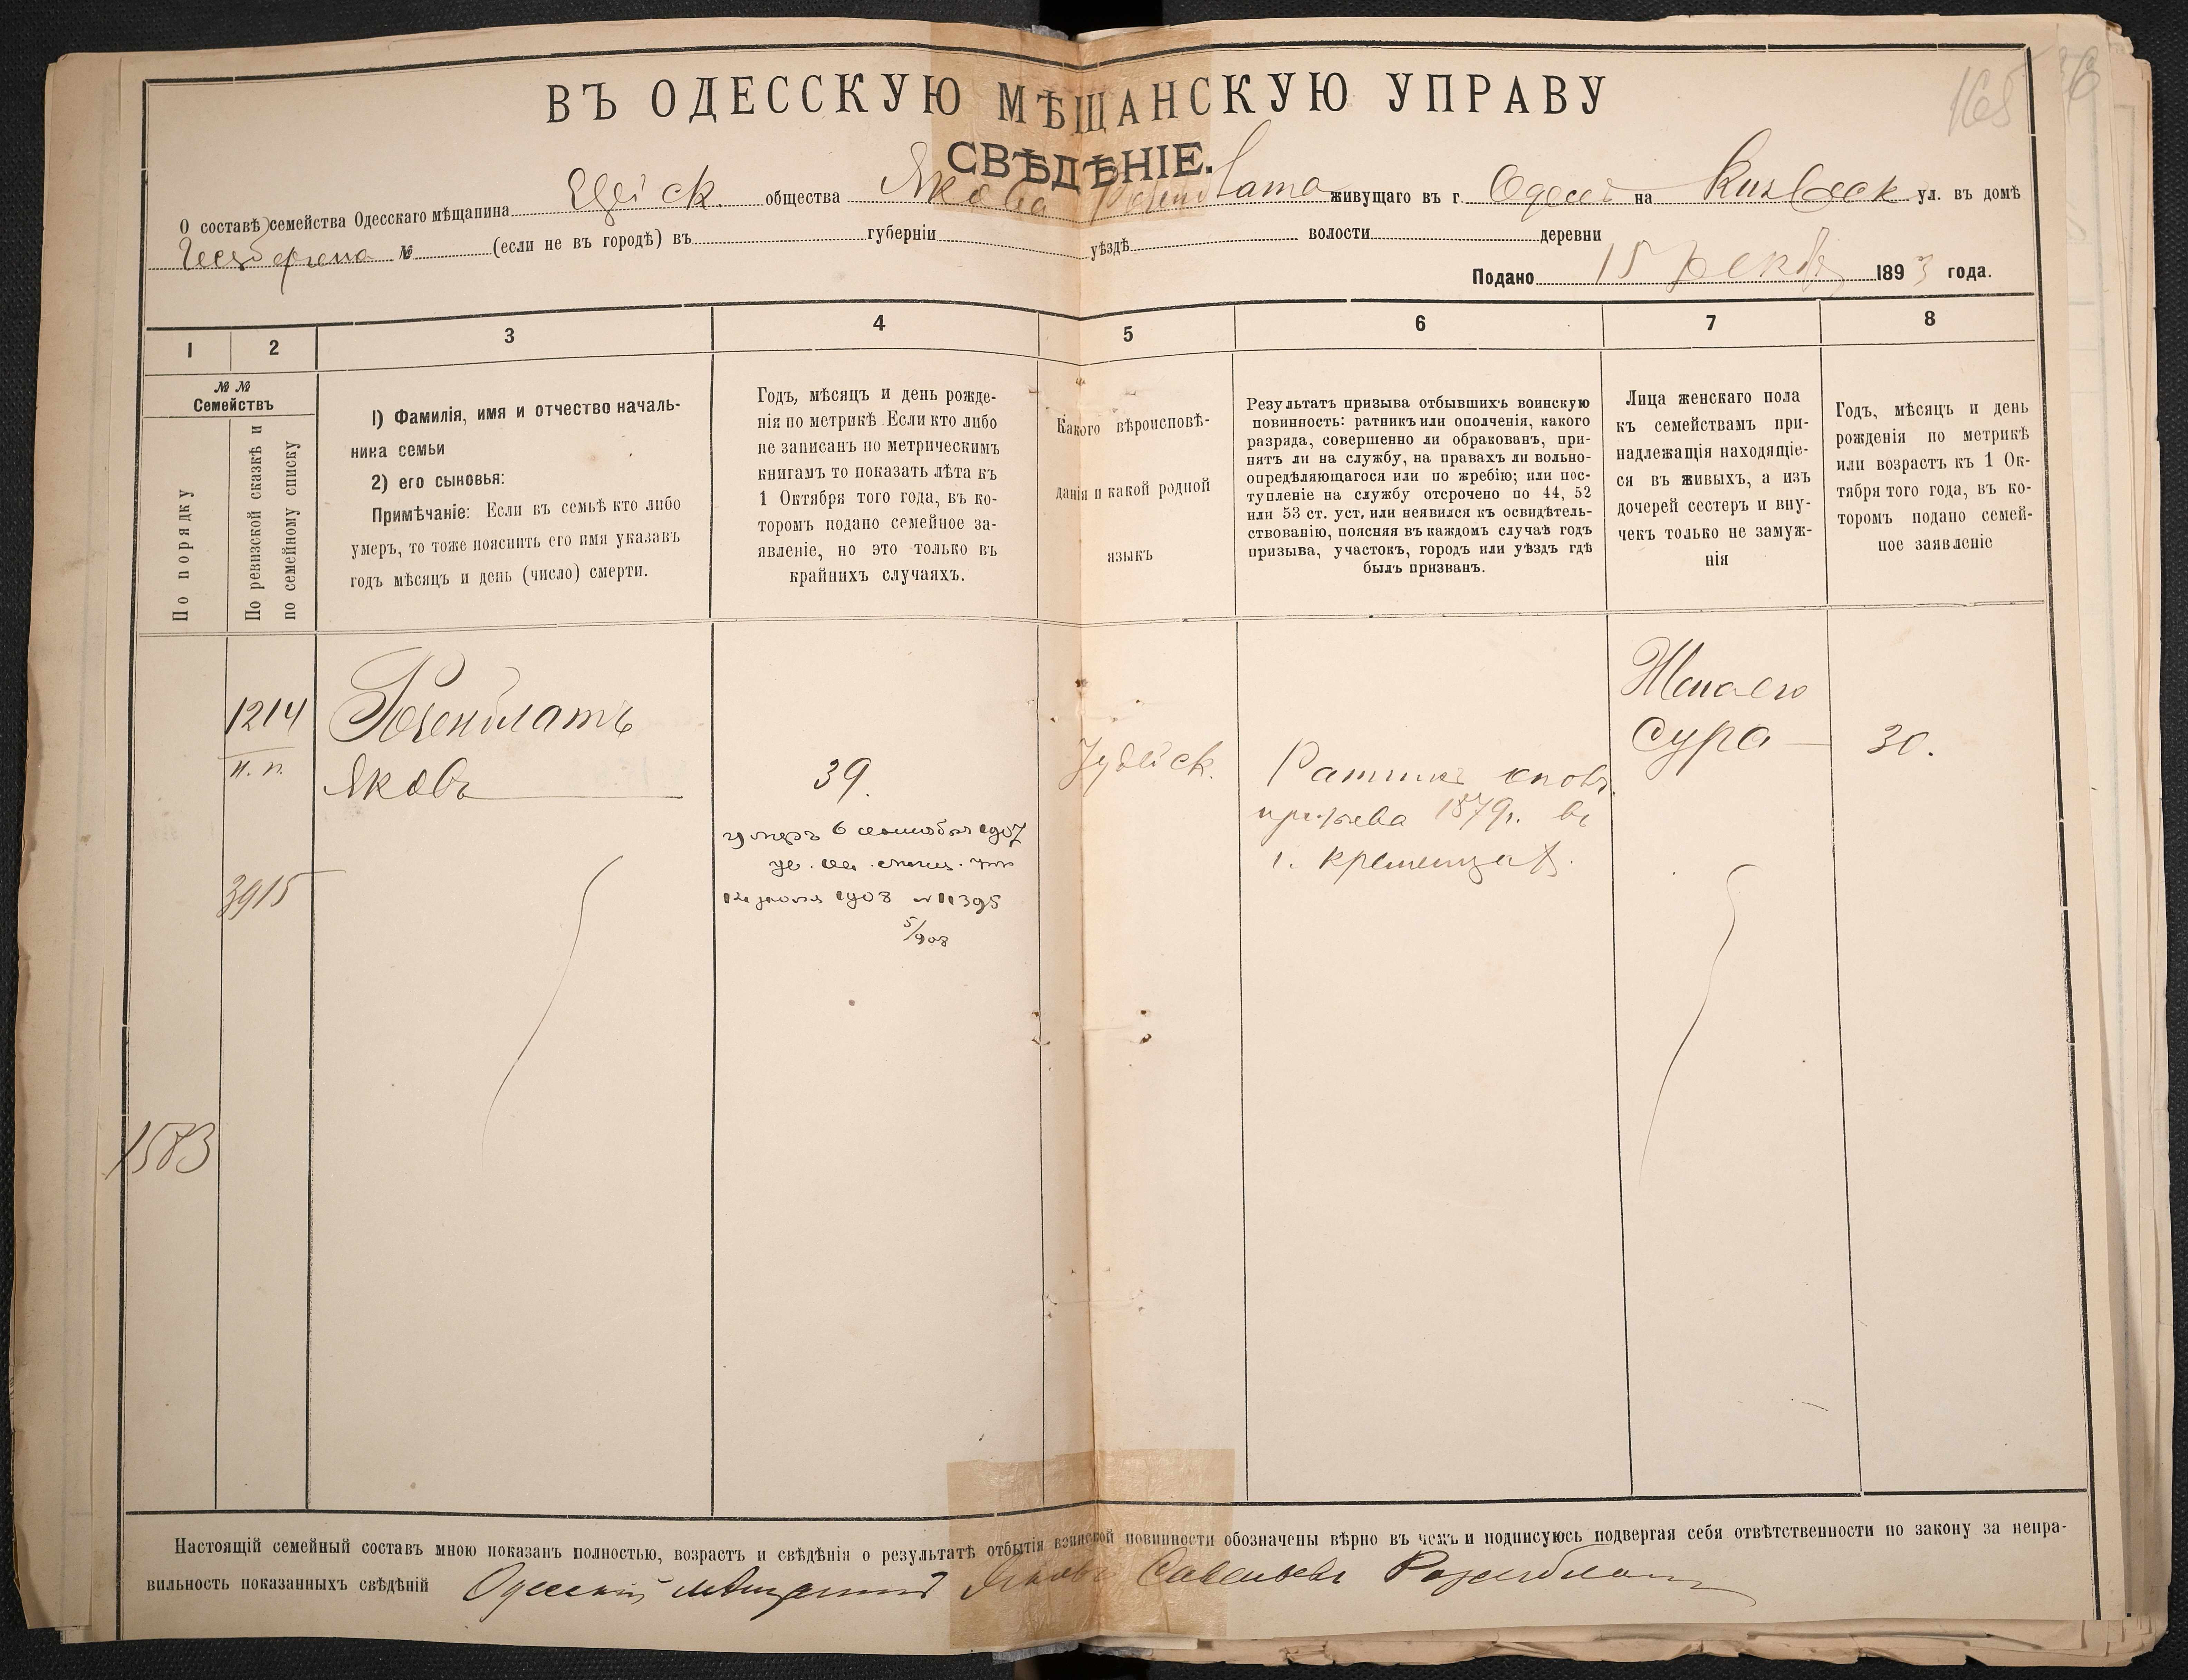 ВЪ ОДЕССКУЮ МѢЩАНСКУЮ УПРАВУ
165
СВѢДѢНІЕ.
О составѣ семейства Одесскаго мѣщанина общества Якова Розенблата живущаго въ г. Одессѣ на ул. въ домѣ
№ (если не въ городѣ) въ губерніи уѣздѣ волости деревни
Подано 15 Декабр 1893 года.
1 2 3 4 5 6 7 8
№ №
Семействъ
По порядку
По ревизской сказкѣ и
по семейному списку
1) Фамилія, имя и отчество началь-
ника семьи
2) его сыновья:
Примѣчаніе: Если въ семьѣ кто либо
умеръ, то тоже пояснить его имя указавъ
годъ мѣсяцъ и день (число) смерти.
Годъ, мѣсяцъ и день рожде-
нія по метрикѣ. Если кто либо
не записанъ по метрическимъ
книгамъ то показать лѣта къ
1 Октября того года, въ ко-
торомъ подано семейное за-
явленіе, но это только въ
крайнихъ случаяхъ.
Какого вѣроисповѣ-
данія и какой родной
языкъ
Результатъ призыва отбывшихъ воинскую
повинность: ратникъ или ополченія, какого
разряда, совершенно ли обракованъ, при-
нятъ ли на службу, на правахъ ли вольно-
опредѣляющагося или по жребію; или пос-
тупленіе на службу отсрочено по 44, 52
или 53 ст. уст, или неявился къ освидѣтель-
ствованію, поясняя въ каждомъ случаѣ годъ
призыва, участокъ, городъ или уѣздъ гдѣ
былъ призванъ.
Лица женскаго пола
къ семействамъ при-
надлежащія находящіе-
ся въ живыхъ, а изъ
дочерей сестеръ и вну-
чекъ только не замуж-
нія
Годъ, мѣсяцъ и день
рожденія по метрикѣ
или возрастъ къ 1 Ок-
тября того года, въ ко-
торомъ подано семей-
ное заявленіе
1214
н. п.
Розенблатъ
Яковъ
39.
умеръ 6 сентября 1907
1908 № 11395
5/908
Іудейск.
Ратникъ
призыва 1879г. въ
г. Кременцѣ
Жена его
Сура
30.
3915
1583
Настоящій семейный составъ мною показанъ полностью, возрастъ и свѣдѣнія о результатѣ отбытія воинской повинности обозначены вѣрно въ чемъ и подписуюсь подвергая себя отвѣтственности по закону за непра-
вильность показанныхъ свѣдѣній Одесскій мѣщанинъ Яковъ Савельевъ Розенблатъ